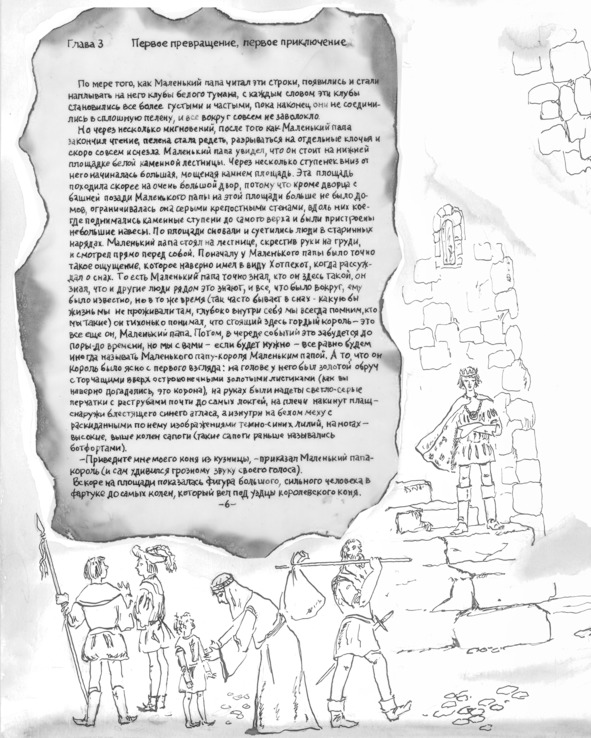 Глава 3 Первое превращение, первое приключение
По мере того, как Маленький папа читал эти строки, появились и стали
наплывать на него клубы белого тумана, с каждым словом эти клубы
становились все более густыми и частыми, пока наконец они не соедини-
лись в сплошную пелену, и все вокруг совсем не заволокло.
Но через несколько мгновений, после того как Маленький папа
закончил чтение, пелена стала редеть, разрываться на отдельные клочья и
скоро совсем исчезла. Маленький папа увидел, что он стоит на нижней
площадке белой каменной лестницы. Через несколько ступенек вниз от
него начиналась большая, мощеная камнем площадь. Эта площадь
походила скорее на очень большой двор, потому что кроме дворца с
башней позади Маленького папы на этой площади больше не было до-
мов, ограничивалась она серыми крепостными стенами, вдоль них кое-
где поднимались каменные ступени до самого верха и были пристроены
небольшие навесы. По площади сновали и суетились люди в старинных
нарядах. Маленький папа стоял на лестнице, скрестив руки на груди,
и смотрел прямо перед собой. Поначалу у Маленького папы было точно
такое ощущение, которое наверно имел в виду Хотпехот, когда рассуж-
дал о снах. То есть Маленький папа точно знал, кто он здесь такой, он
знал, что и другие люди рядом это знают, и все, что было вокруг, ему
было известно, но в то же время (так часто бывает в снах - какую бы
жизнь мы не проживали там, глубоко внутри себя мы всегда помним, кто
мы такие) он тихонько понимал, что стоящий здесь гордый король – это
все еще он, Маленький папа. Потом, в череде событий это забудется до
поры-до времени, но мы с вами – если будет нужно – все равно будем
иногда называть Маленького папу-короля Маленьким папой. А то, что он
король было ясно с первого взгляда: на голове у него был золотой обруч
с торчащими вверх остроконечными золотыми листиками (как вы
наверно догадались, это корона), на руках были надеты светло-серые
перчатки с раструбами почти до самых локтей, на плечи накинут плащ –
снаружи блестящего синего атласа, а изнутри на белом меху с
раскиданными по нему изображениями темно-синих лилий, на ногах –
высокие, выше колен сапоги (такие сапоги раньше назывались
ботфортами).
–Приведите мне моего коня из кузницы, – приказал Маленький папа-
король (и сам удивился грозному звуку своего голоса).
Вскоре на площади показалась фигура большого, сильного человека в
фартуке до самых колен, который вел под уздцы королевского коня.
–6–